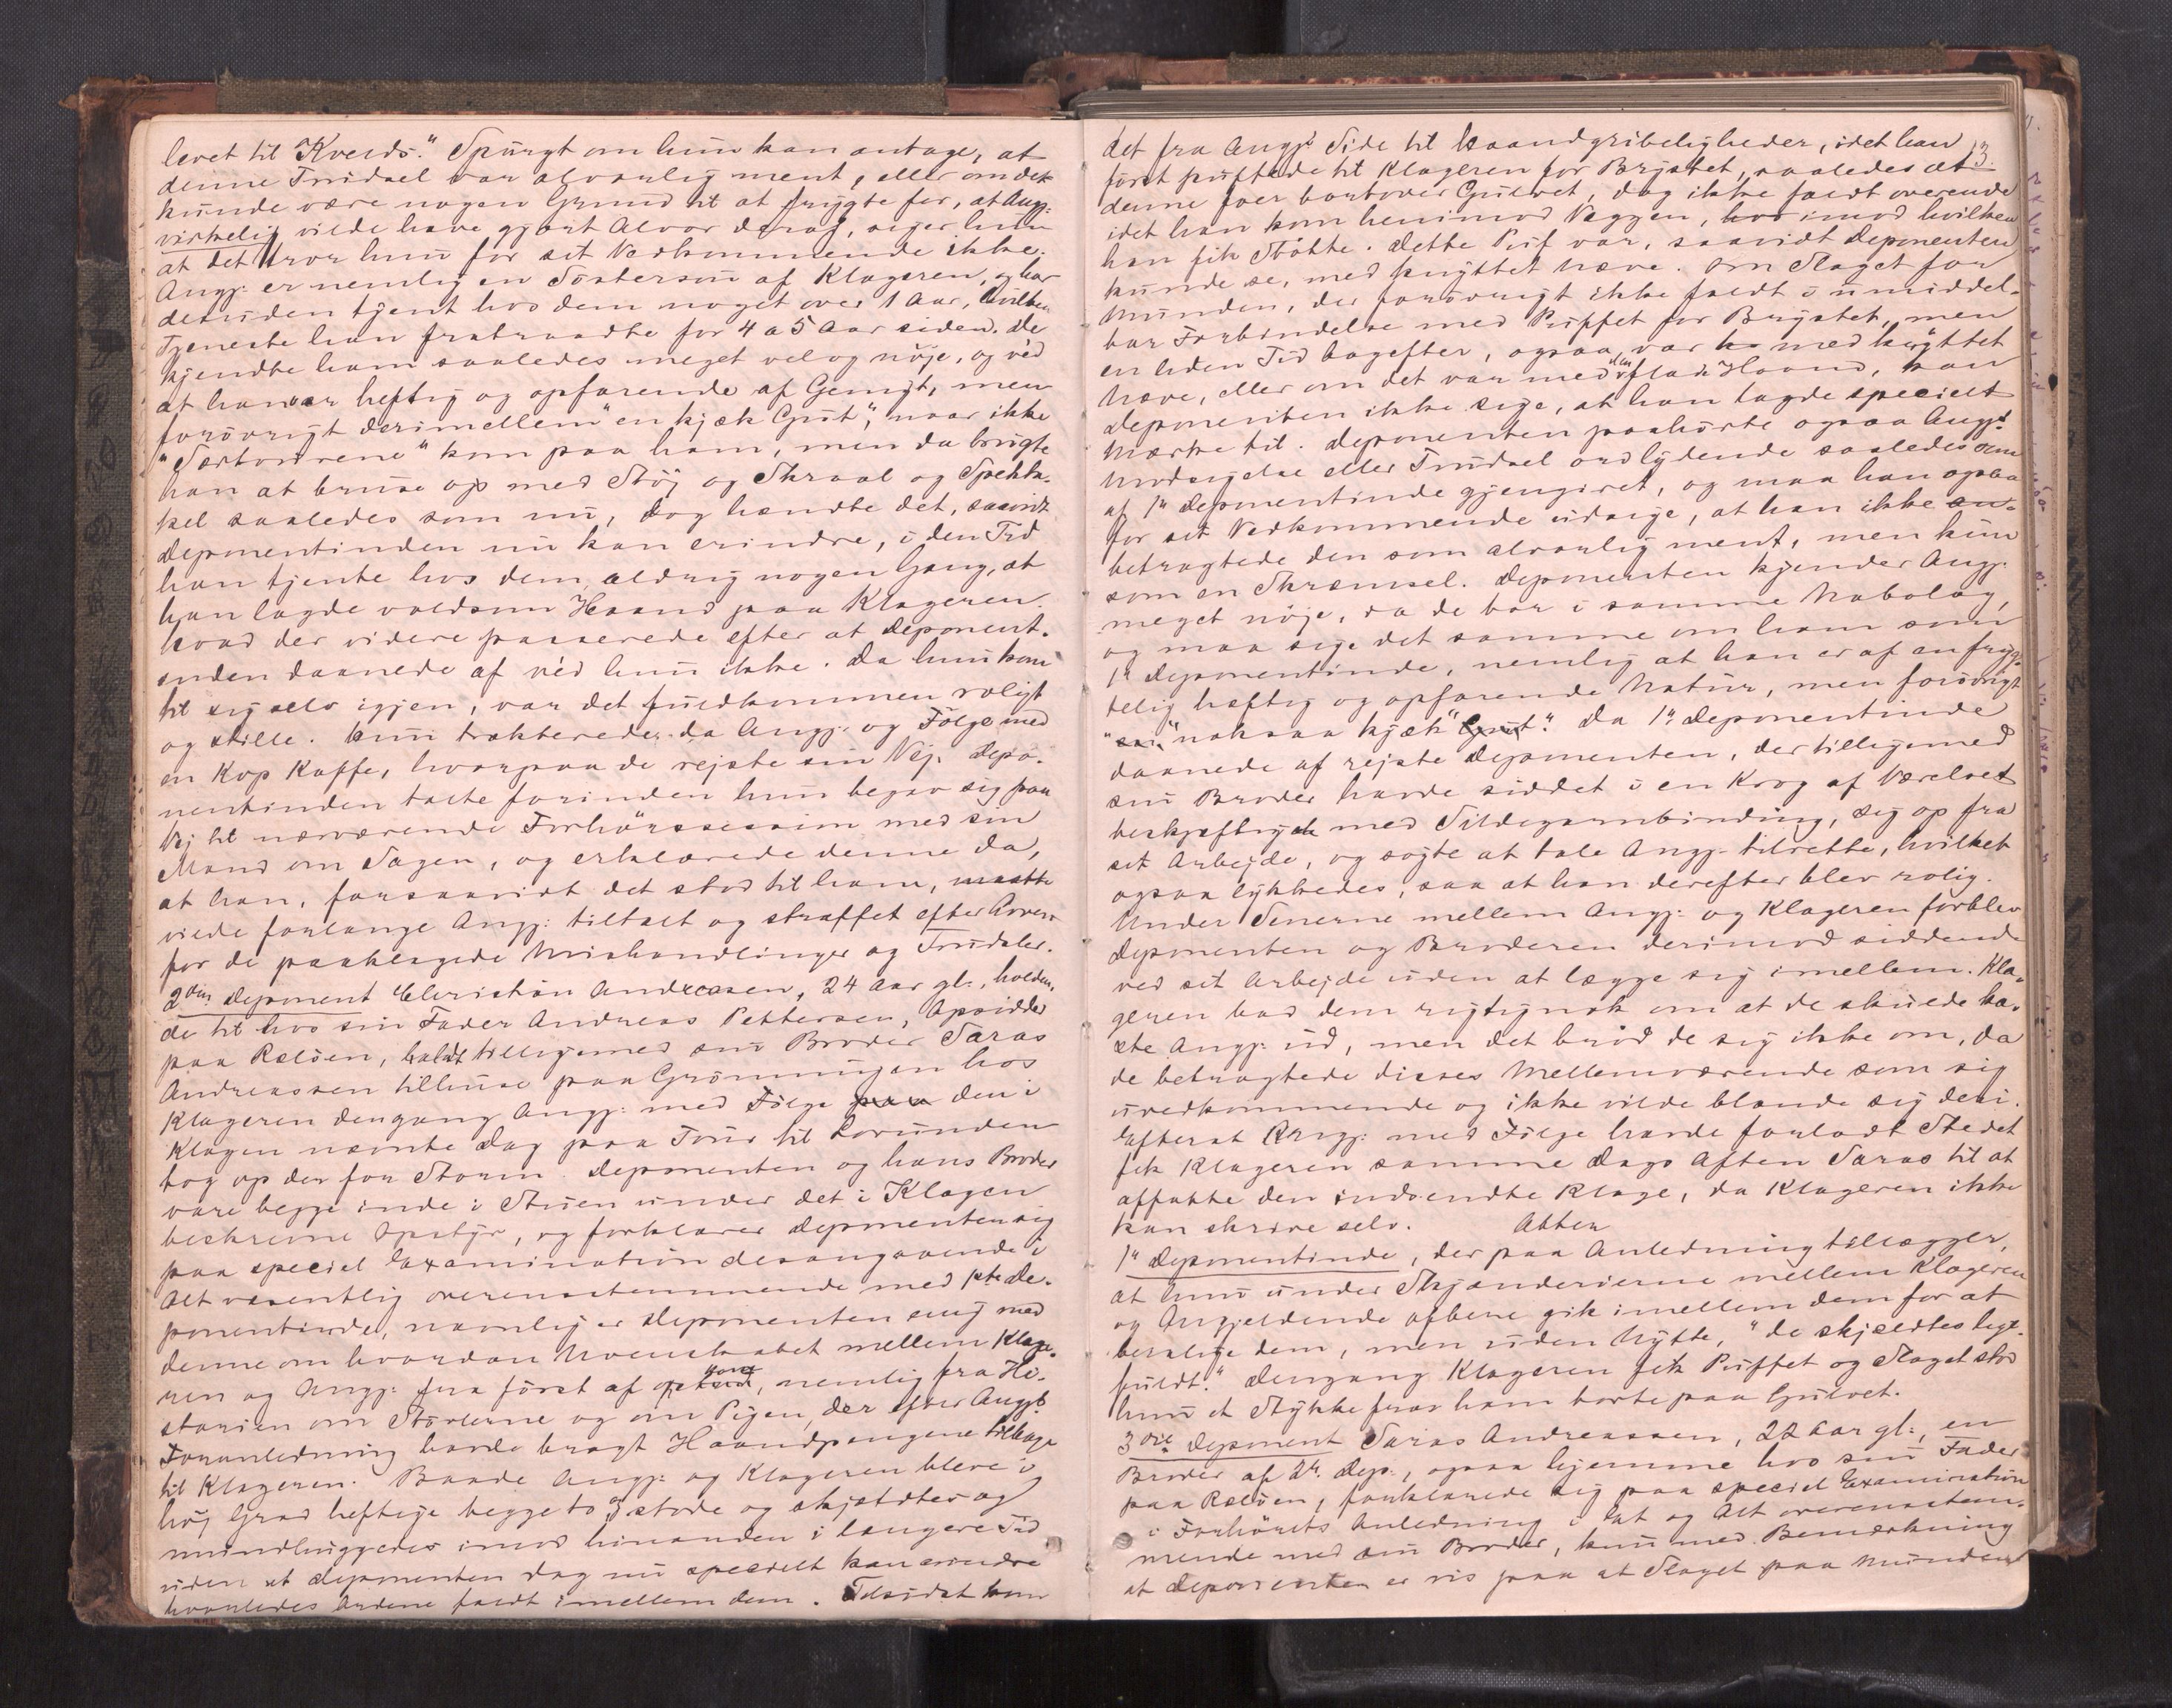 levet til Kvelds." Spurgt om hun kan antage, at
denne Trudsel var alvorlig ment, eller om det
kunde være nogen Grund til at frygte for, at Angj:
virkelig vilde have gjort Alvor deraf, siger hun
at det tror hun for sit Vedkommende ikke.
Angj: er nemlig en Søstersøn af Klageren, og har
desuden tjent hos dem noget over 1 Aar, hvilken
Tjeneste han fratraadte for 4 a 5 Aar siden. De
kjendte ham saaledes meget vel og nøje, og véd
at han var heftig og opfarende af Gemyt, men
forøvrigt derimellem "en kjæk Gut", naar ikke
"Særtourene" kom paa ham, men da brugte
han at bruse op med Støj og Skraal og Spektak-
kel saaledes som nu, dog hændte det, saavidt
deponentinden nu kan erindre, i den Tid
han tjente hos dem aldrig nogen Gang, at
han lagde voldsom Haand paa Klageren.
Hvad der videre passerede efter at Deponent-
inden daanede af véd hun ikke. Da hun kom
til sig selv igjen, var det fuldkommen roligt
og stille. Hun trakterede da Angj: og Følge med
en Kop Kaffe, hvorpaa de rejste sin Vej. Depo-
nentinden talte forinden hun begav sig paa
Vej til nærværende Forhørssession med sin
Mand om Sagen, og erklærede denne da,
at han, forsaavidt det stod til ham, maatte
vilde forlange Angj: tiltalt og straffet efter Loven
for de paaklagede Mishandlinger og Trudsler.
2den Deponent Christian Andreasen, 24 Aar gl:, holden-
de til hos sin Fader Andreas Pettersen, Opsidder
paa Selsøen, holdt tilligemed sin Broder Saras
Andreassen tilhuse paa Grønningen hos
Klageren dengang Angj: med Følge paa den i
Klagen nævnte Dag paa Tour til Lovunden
tog op der for Storm. Deponenten og hans Broder
vare begge inde i Stuen under det i Klagen
beskrevne Opstyr, og forklarer Deponenten sig
paa speciel Examination desangaaende i
Alt væsentlig overensstemmende med 1ste De-
ponentinde, navnlig er Deponenten enig med
denne om hvordan Uvenskabet mellem Klage-
ren og Angj: fra først af opkom, nemlig fra Hi-
storien om Størlerne og om Pigen, der efter Angj:s
Foranledning havde bragt Haandpengene tilbage
til Klageren. Baade Angj: og Klageren bleve i
høj Grad heftige begge to, og stode og skjældtes og
mundhuggedes imod hinanden i længere Tid
uden at Deponenten dog nu specielt kan erindre
hvorledes Ordene faldt imellem dem. Tilsidst kom
13.
det fra Angj:s Side til Haandgribeligheder, idet han
først puffede til Klageren for Brystet, saaledes at
denne foer bortover Gulvet, dog ikke faldt overende
idet han kom henimod Væggen, hvor imod hvilken
han fik Støtte. Dette Puf var, saavidt Deponenten
kunde se, med knyttet Næve. Om Slaget for
Munden, der forøvrigt ikke faldt i umiddel-
bar Forbindelse med Puffet for Brystet, men
en liden Tid bagefter, ogsaa var med knyttet
Næve, eller om det var med en flad Haand, kan
Deponenten ikke sige, at han lagde specielt
Mærke til. Deponenten paahørte ogsaa Angj:s
Undsigelse eller Trudsel ordlydende saaledes som
af 1ste Deponentinde gjengivet, og maa han ogsaa
for sit Vedkommende udsige, at han ikke an-
betragtede den som alvorlig ment, men kun
som en Skræmsel. Deponenten kjender Angj:
meget nøje, da de bor i samme Nabolag,
og maa sige det samme om ham som
1ste Deponentinde, nemlig at han er af en fryg-
telig heftig og opfarende Natur, men forøvrigt
"noksaa kjæk" Gut". Da 1ste Deponentinde
daanede af rejste Deponenten, der tilligemed
sin Broder havde siddet i en Krog af Værelset
beskjæftiget med Sildegarnbinding, sig op fra
sit Arbejde, og søgte at tale Angj: tilrette, hvilket
ogsaa lykkedes, saa at han derefter blev rolig.
Under Scenerne mellem Angj: og Klageren forblev
Deponenten og Broderen derimod siddende
ved sit Arbejde uden at lægge sig imellem. Kla-
geren bad dem rigtignok om at de skulde ka-
ste Angj: ud, men det brød de sig ikke om, da
de betragtede disses Mellemværende som sig
uvedkommende og ikke vilde blande sig deri.
Efterat Angj: med Følge havde forladt Stedet
fik Klageren samme Dags Aften Saras til at
affatte den indsendte Klage, da Klageren ikke
kan skrive selv. Atter
1ste Deponentinde, der paa Anledning tillægger,
at hun under Skjænderierne mellem Klageren
og Angjeldende oftere gik imellem dem for at
berolige dem, men uden Nytte, "de skjældtes lige-
fuldt." Dengang Klageren fik Puffet og Slaget stod
hun et Stykke fra ham borte paa Gulvet.
3die Deponent Saras Andreassen, 22 Aar gl:, en
Broder af 2den Dep:, ogsaa hjemme hos sin Fader
paa Selsøen, forklarede sig paa speciel Examination
i Forhørets Anledning i Et og Alt overensstem-
mende med sin Broder, kun med Bemærkning
at Deponenten er vis paa at Slaget paa Munden